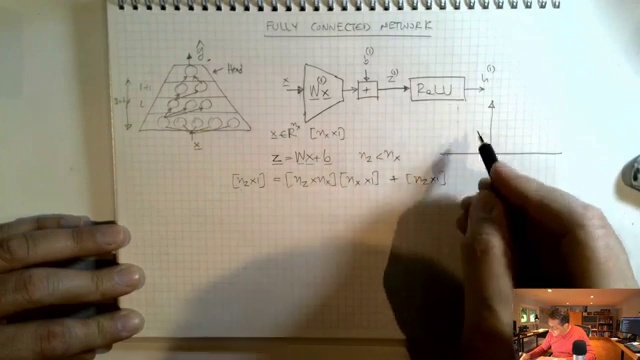 FULLY CONNECTED NETWORK
ŷ
Head
L+1
L
x
x
W x
(1)
b
(1)
+
z
(1)
ReLU
h
(1)
x ∈ R [nₓ×1]
z = Wx + b n_z < nₓ
[n_z×1] = [n_z×nₓ][nₓ×1] + [n_z×1]